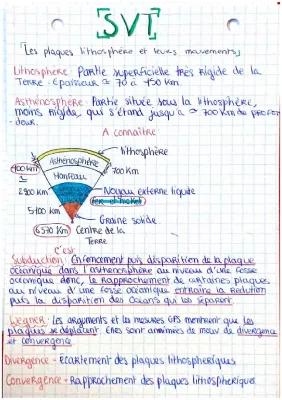 [SVT]
[Les plaques lithosphère et leurs mouvements]
Lithosphère : Partie superficielle très rigide de la
Terre - Epaisseur ≃ 70 à 150 km
Asthénosphère : Partie située sous la lithosphère,
moins rigide, qui s'étend jusqu'a ≃ 700 km de profon
- deur.
A connaître
lithosphère
100 km
Asthénosphère
700 km
Manteau
2900 km
Noyau externe liquide
5100 km
Graine solide
6370 km
Centre de la
Terre
c'est
Subduction : Enfoncement puis disparition de la plaque
océanique dans l'asthénosphère au niveau d'une fosse
océanique donc, le rapprochement de certaines plaques
au niveau d'une fosse océanique entraîne la réduction
puis la disparition des océans qui les séparent
Wegner : les arguments et les mesures GPS montrent que les
plaques se déplacent. Elles sont animées de mouv de divergence
et convergence
Divergence - Ecartement des plaques lithosphériques
Convergence - Rapprochement des plaques lithosphérique